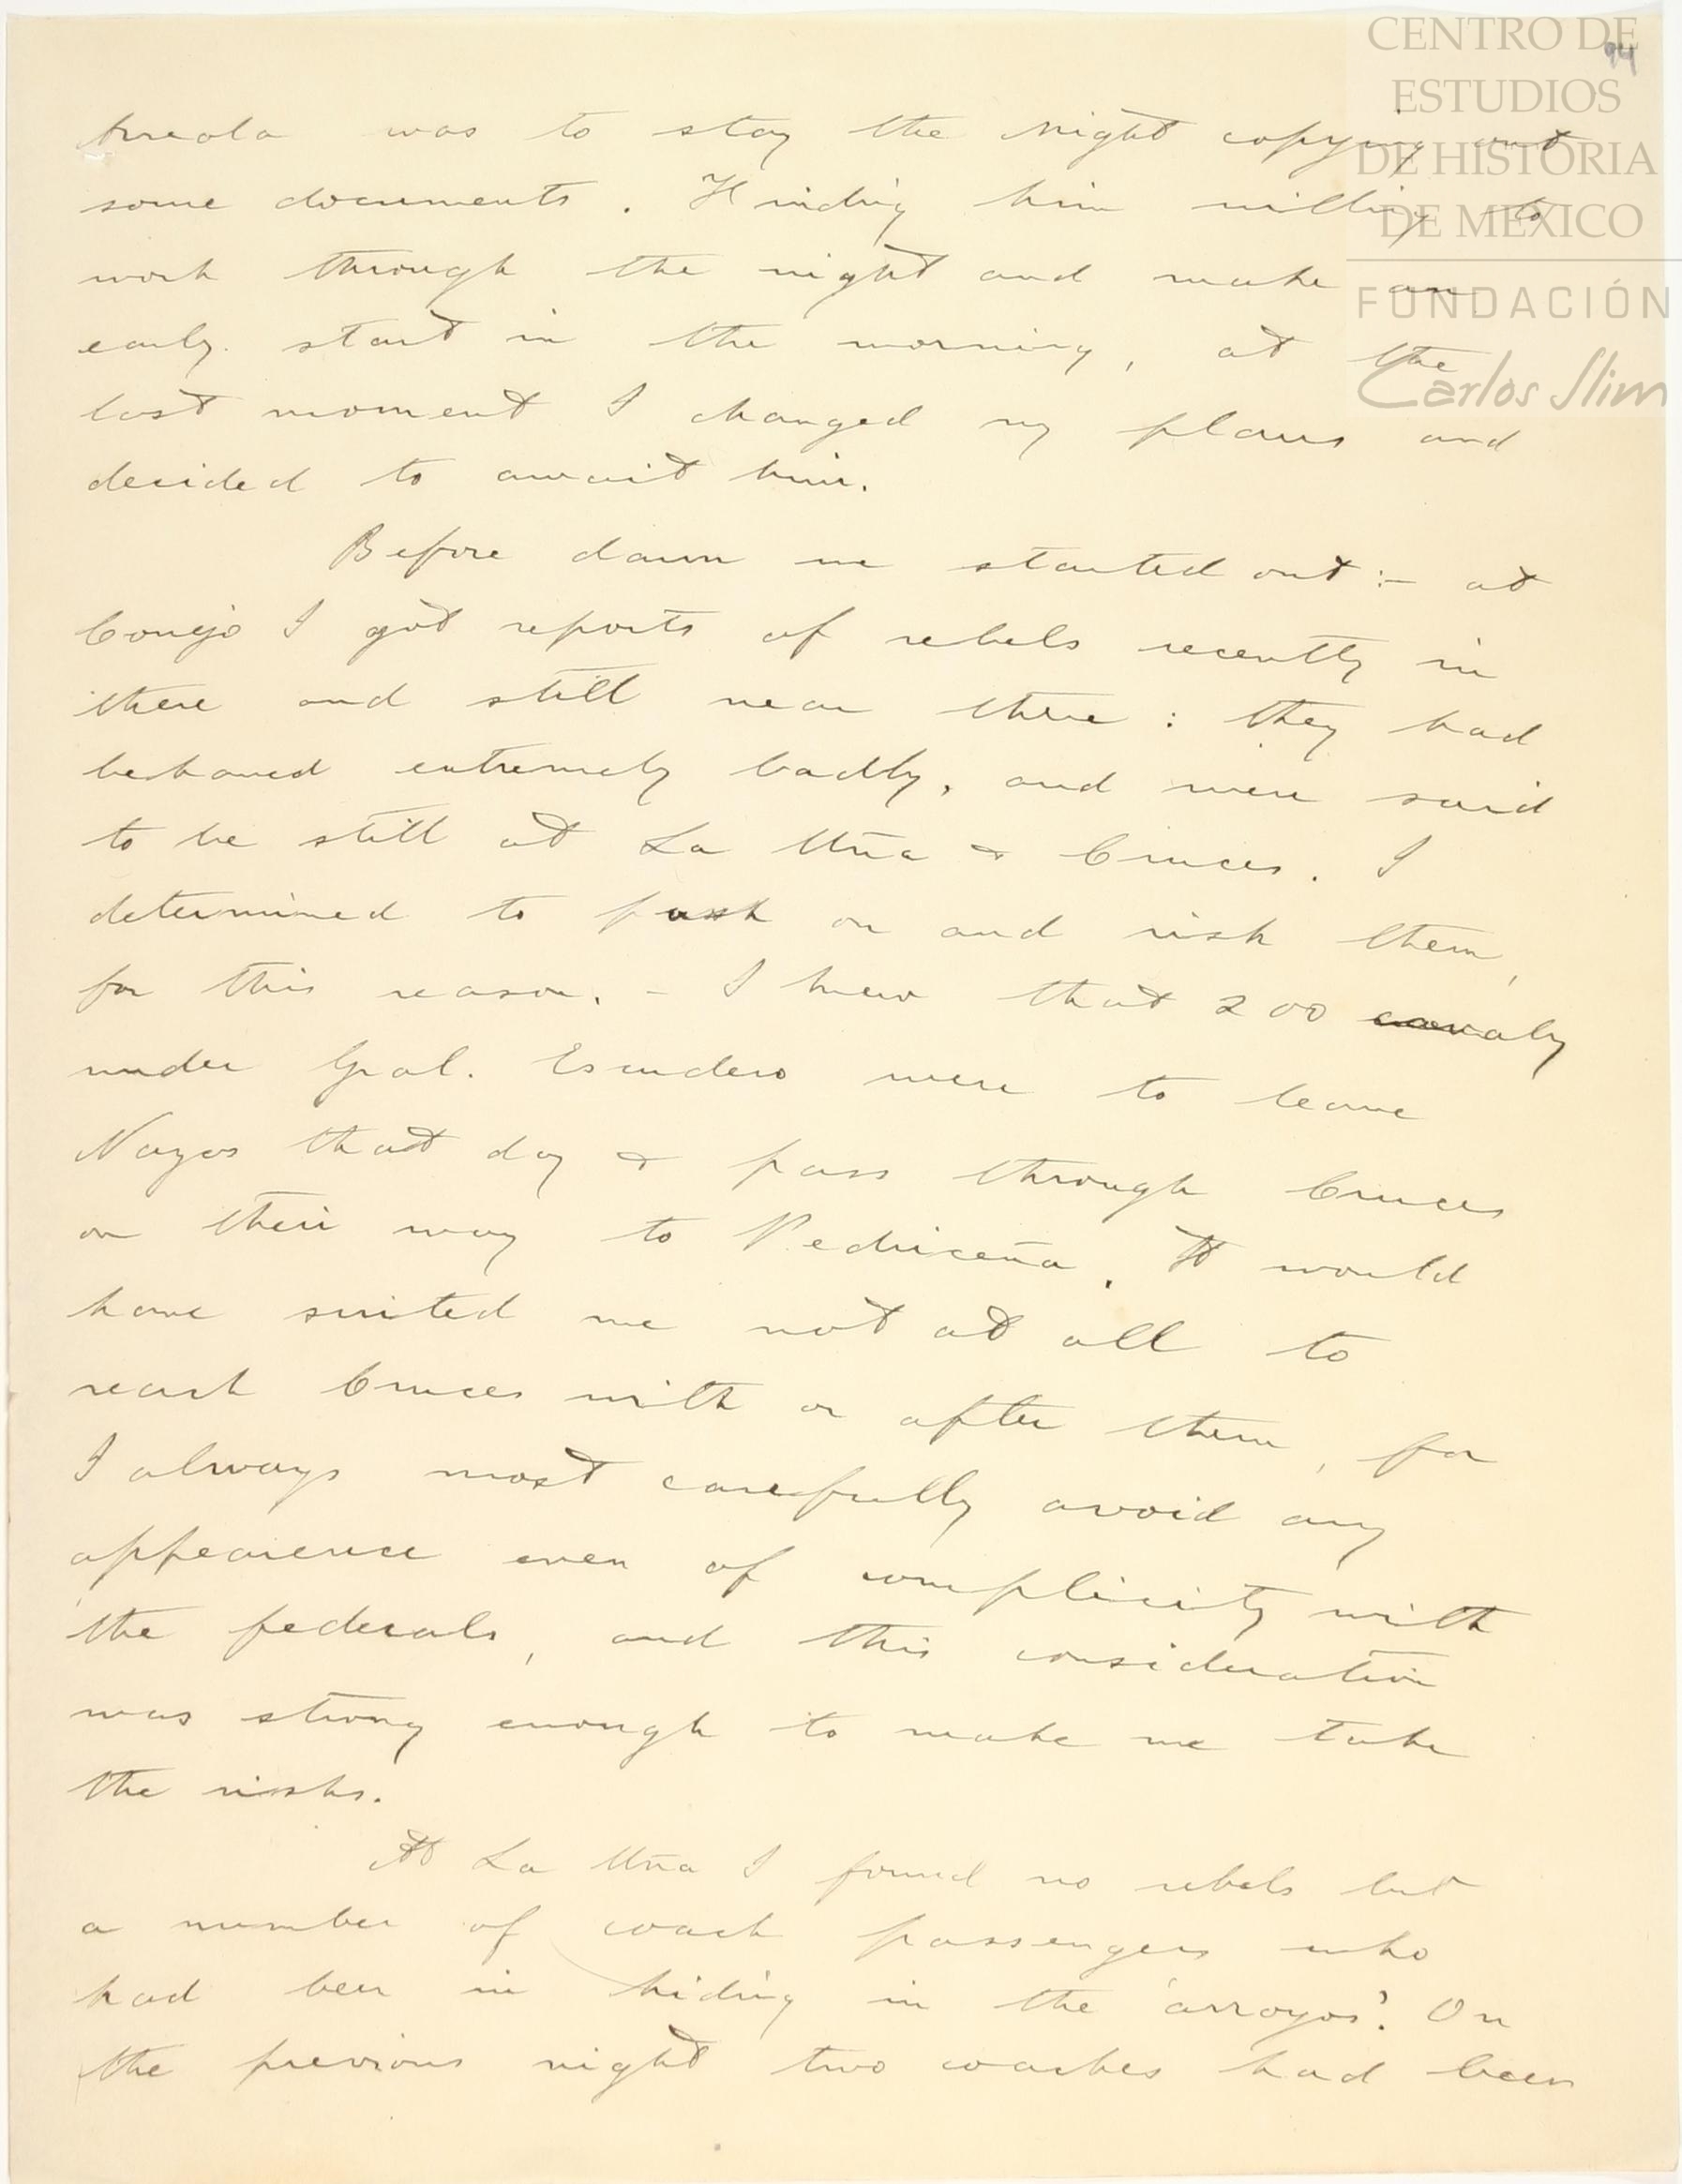 CENTRO DE
ESTUDIOS
DE HISTORIA
DE MEXICO
FUNDACIÓN
Carlos Slim
94
Arreola was to stay the night copying out
some documents. Finding him willing to
work through the night and make an
early start in the morning, at the
last moment I changed my plans and
decided to await him.
Before dawn we started out :- at
Conejo I got reports of rebels recently in
there and still near there : they had
behaved extremely badly, and were said
to be still at La Uña & Cruces. I
determined to push on and risk them,
for this reason. - I knew that 200 cavalry
under Gral. Escudero were to leave
Nazas that day & pass through Cruces
on their way to Pedriceña. It would
have suited me not at all to
reach Cruces with or after them, for
I always most carefully avoid any
appearence even of complicity with
the federals, and this consideration
was strong enough to make me take
the risks.
At La Uña I found no rebels but
a number of coach passengers who
had been in hiding in the 'arroyos'. On
the previous night two coaches had been